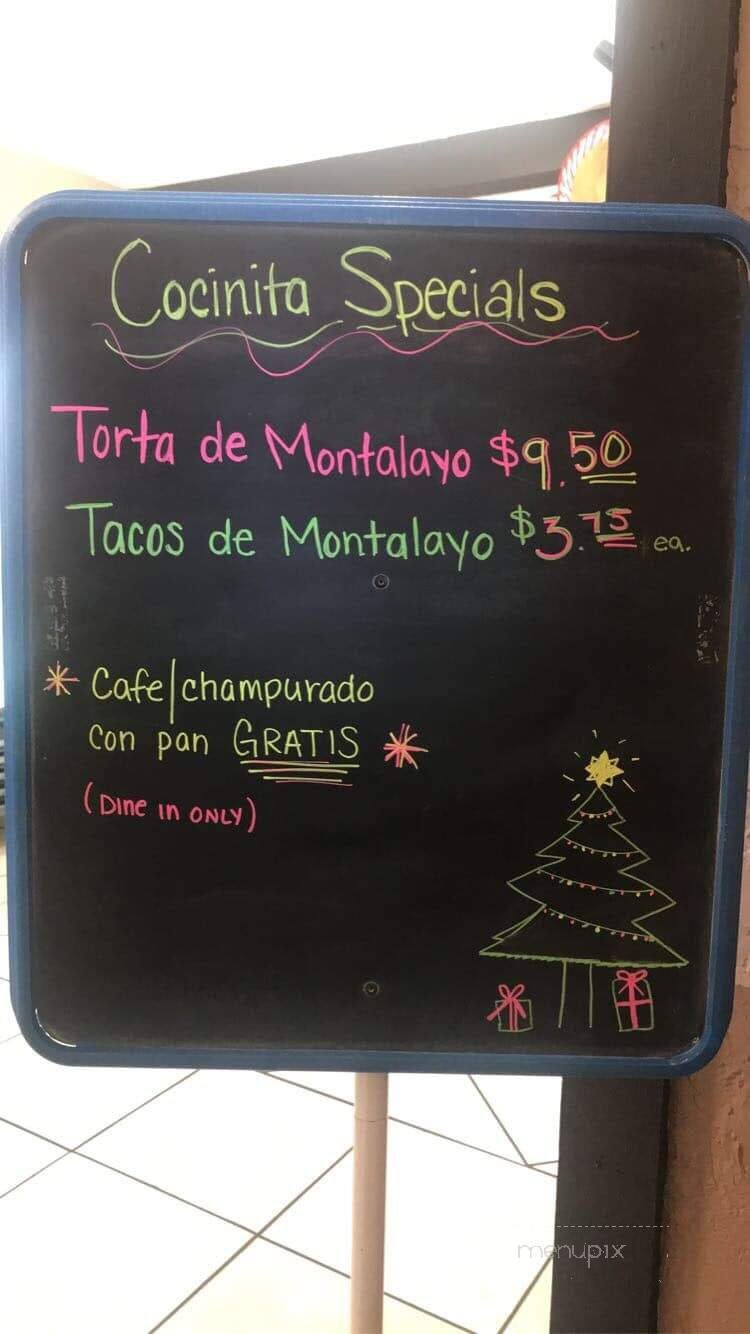 Cocinita Specials
Torta de Montalayo $9.50
Tacos de Montalayo $3.75 ea.
* Cafe/champurado
con pan GRATIS *
(Dine in ONLY)
menupix